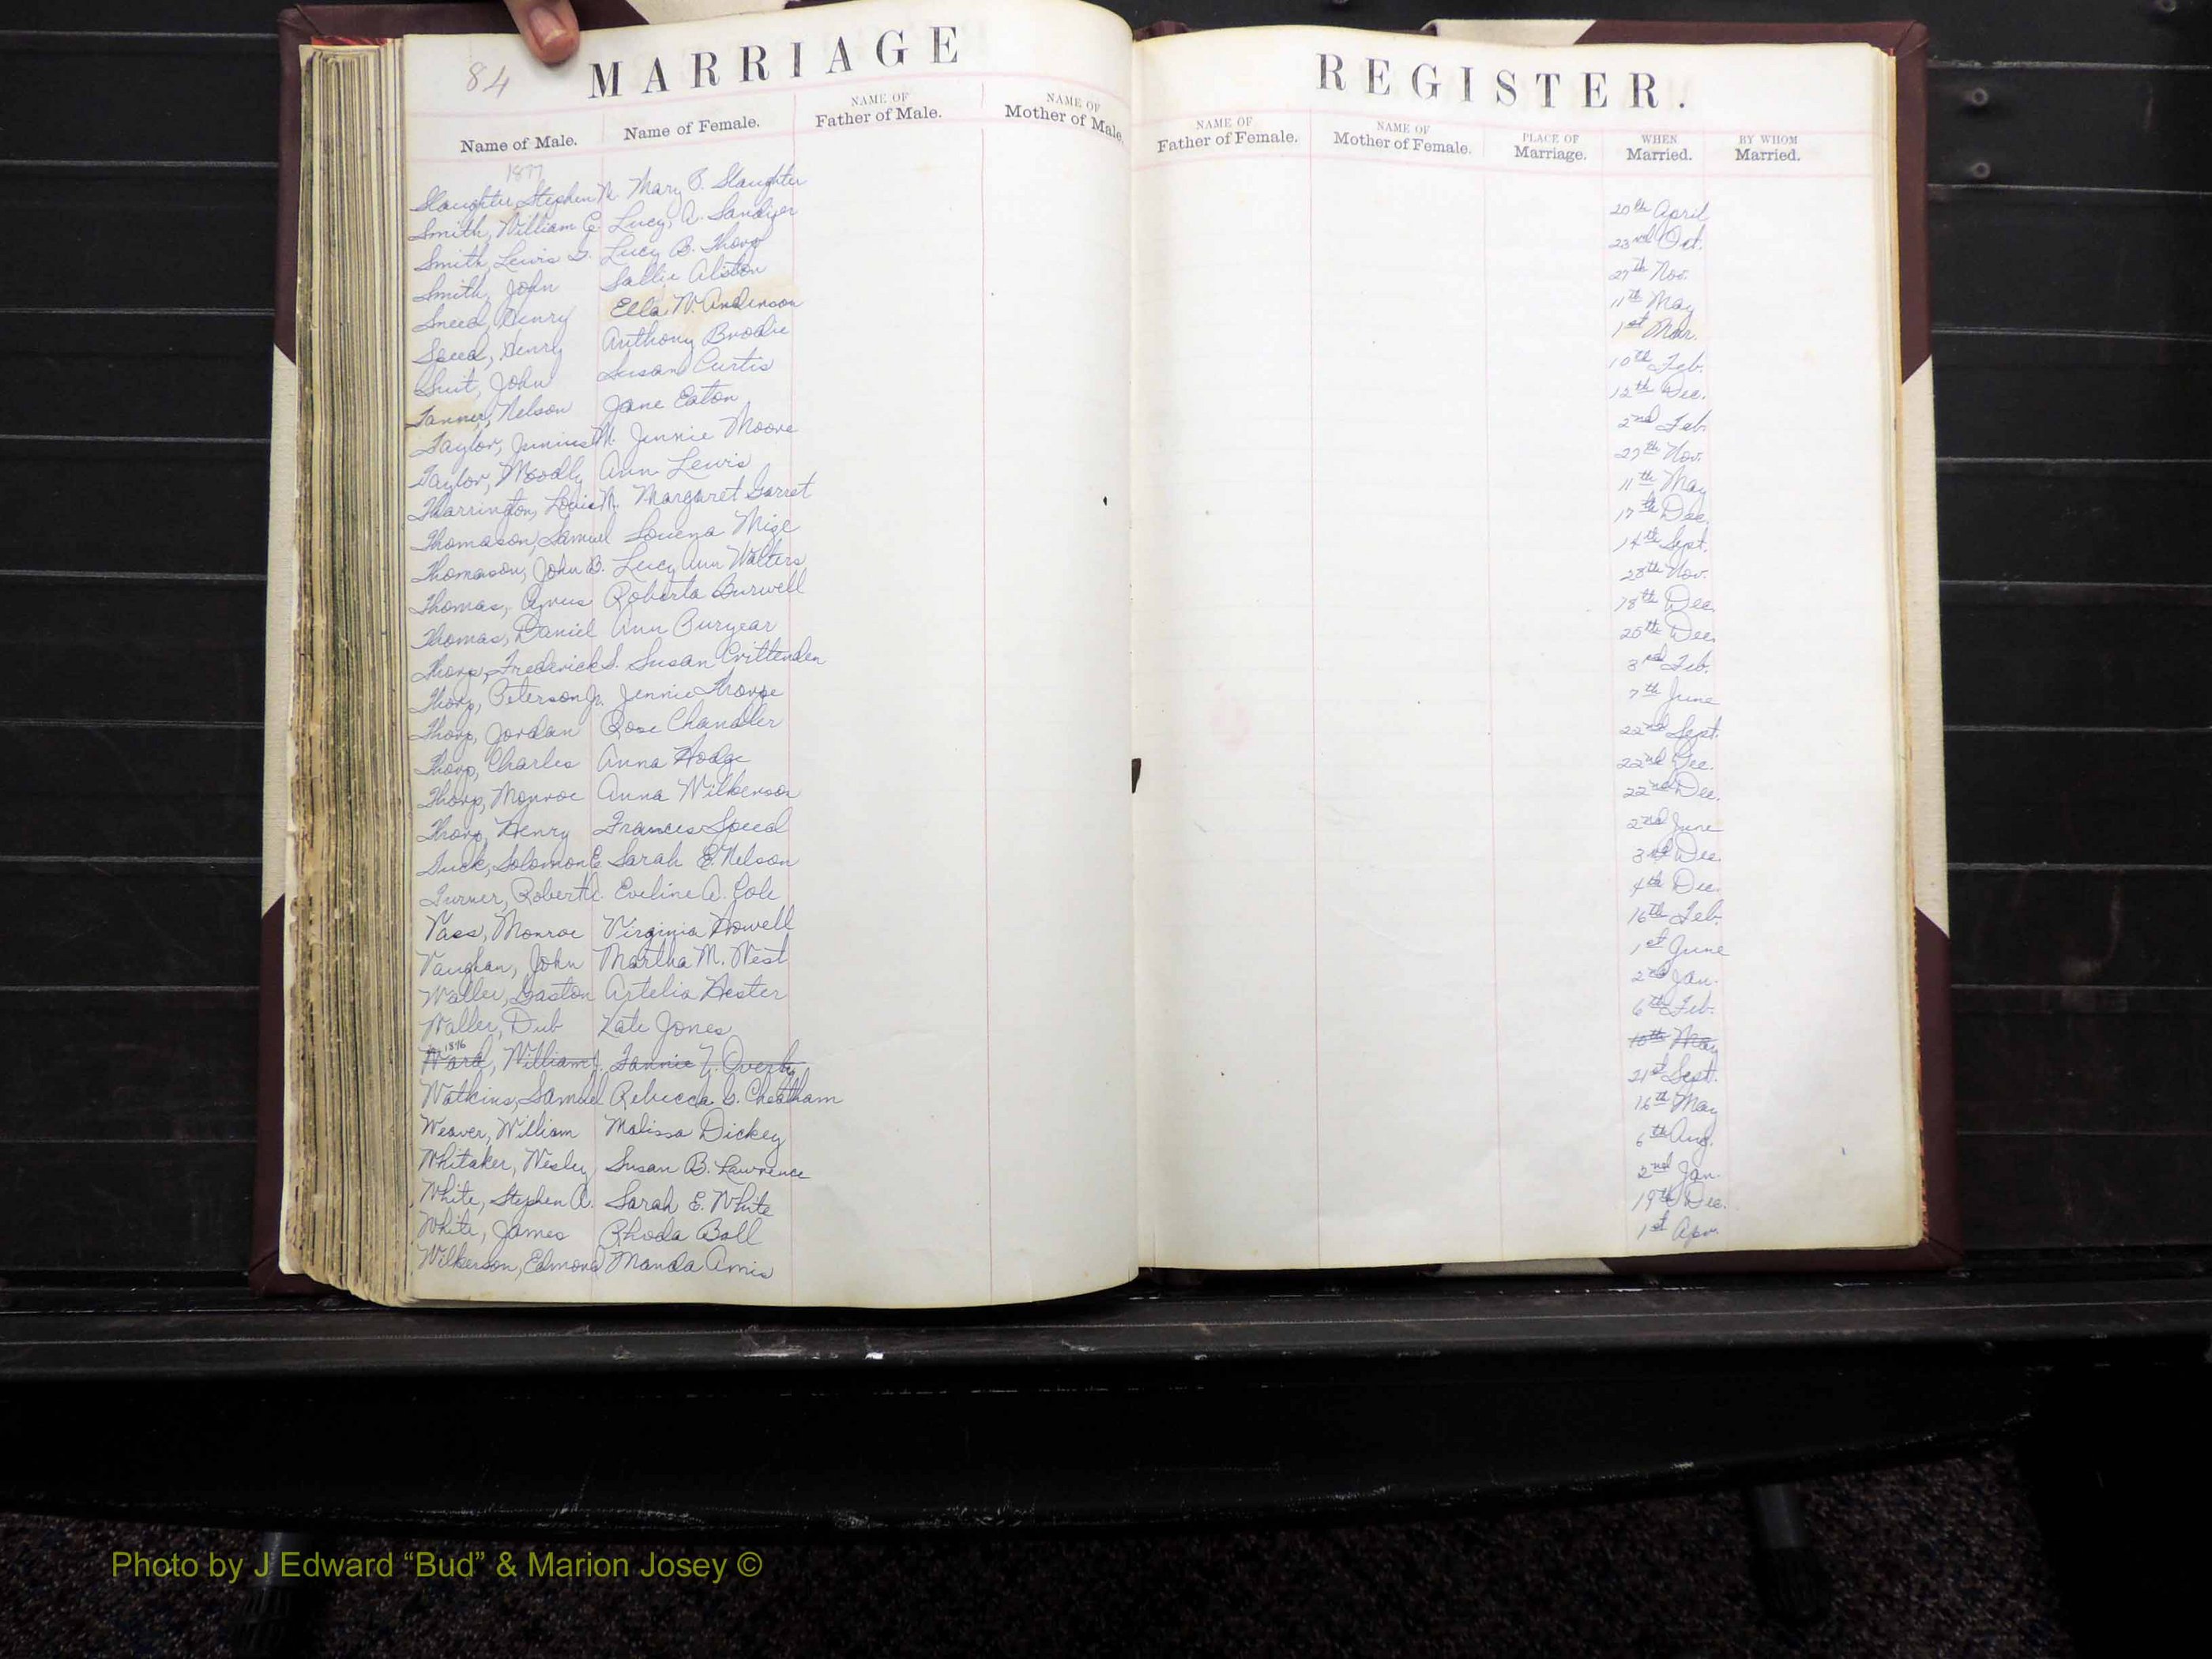 84
MARRIAGE REGISTER.
Name of Male. Name of Female. NAME OF Father of Male. NAME OF Mother of Male. NAME OF Father of Female. NAME OF Mother of Female. PLACE OF Marriage. WHEN Married. BY WHOM Married.
1877
Slaughter, Stephen M. Mary P. Slaughter 20th April
Smith, William G. Lucy A. 23rd Oct.
Smith, Lewis Lucy B. Thorp 27th Nov.
Smith, John Sallie Alston 11th May
Sneed, Henry Ella W. Anderson 1st Mar.
Speed, Henry Anthony Brodie 10th Feb.
Suit, John Susan Curtis 12th Dec.
Tanner, Nelson Jane Eaton 2nd Feb.
Taylor, Junius M. Jennie Moore 27th Nov.
Taylor, Moodly Ann Lewis 11th May
Tharrington, Louis N. Margaret Garret 17th Dec.
Thomason, Samuel Louena Mize 14th Sept.
Thomason, John B. Lucy Ann Walters 28th Nov.
Thomas, Roberta Burwell 18th Dec.
Thomas, Daniel Ann Puryear 25th Dec.
Thorp, Frederick S. Susan Crittenden 3rd Feb.
Thorp, Peterson Jr. Jennie Thorpe 7th June
Thorp, Jordan Rose Chandler 22nd Sept.
Thorp, Charles Anna Hodge 22nd Dec.
Thorp, Monroe Anna Wilkerson 22nd Dec.
Thorp, Henry Frances Speed 2nd June
Tuck, Solomon C. Sarah E. Nelson 3rd Dec.
Turner, Robert A. Eveline A. Cole 4th Dec.
Vass, Monroe Virginia Howell 16th Feb.
Vaughan, John Martha M. West 1st June
Waller, Gaston Artelia Hester 2nd Jan.
Waller, Dub Kate Jones 6th Feb.
1876
Ward, William J. Fannie Y. Overby 10th May
Watkins, Samuel Rebecca G. Cheatham 21st Sept.
Weaver, William Malissa Dickey 16th May
Whitaker, Wesley Susan B. Lawrence 6th Aug.
White, Stephen A. Sarah E. White 2nd Jan.
White, James Rhoda Ball 19th Dec.
Wilkerson, Edmond Manda Amis 1st Apr.
Photo by J Edward “Bud” & Marion Josey ©